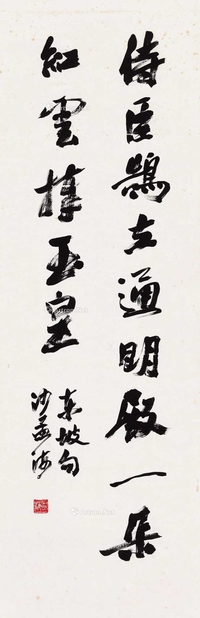 侍臣鵠立通明殿一朵
紅雲捧玉皇
東坡句
沙孟海